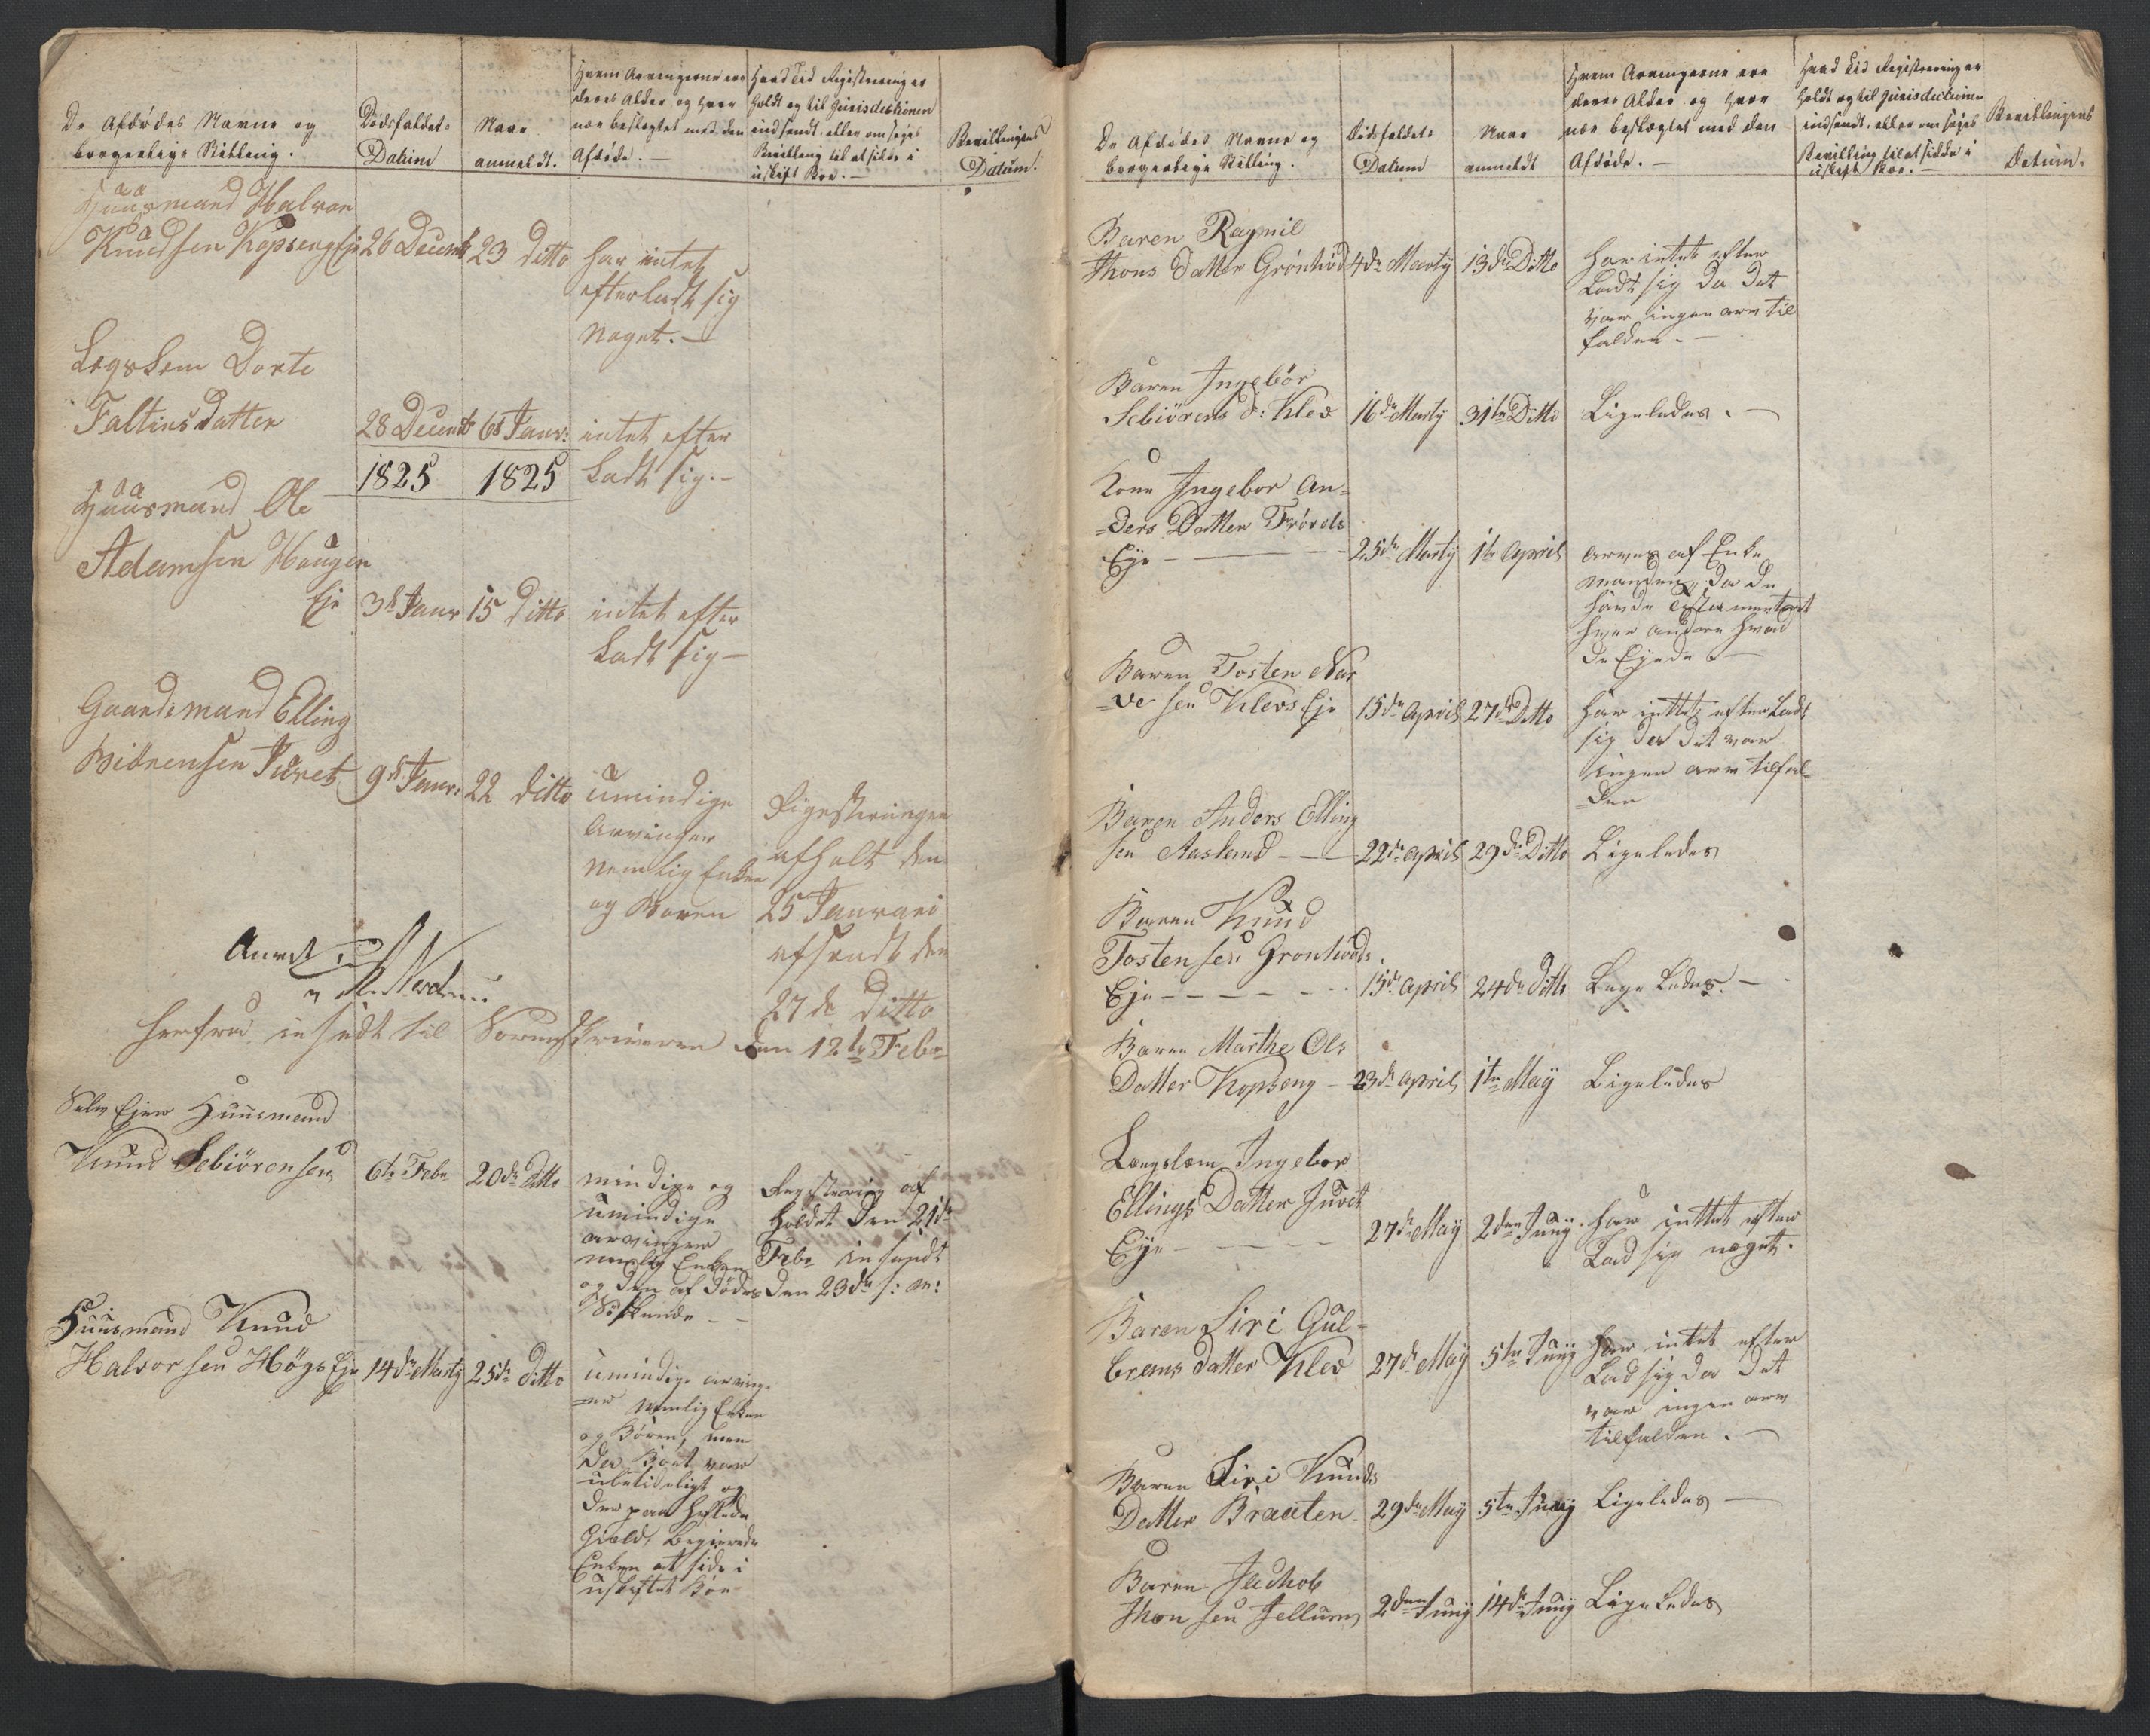 De Afdødes Navne og
borgerlige Stilling.
Dødsfaldets
Datum
Naar
anmeldt.
Hvem Arvingerne ere
deres Alder og hvor
nær beslægtet med den
Afdøde. —
Hvad Tid Registrering er
holdt og til Jurisdictionen
indsendt, eller om søges
Bevilling til at sidde i
uskift Boe. —
Bevillingens
Datum.
Huusmand Halvor
Knudsen Kopseng Eje 26 Decemb 23 ditto har intet
efterladt sig
noget. —
Legslem Dorte
Faltinsdatter 28 Decemb 6t Janr: intet efter
1825 1825 Ladt sig. —
Huusmand Ole
Adamsen Haugen
Eje 3d Janr 15 ditto intet efter
Ladt sig —
Gaardmand Elling
Biörensen Juvet 9d Janr: 22 ditto umindige
Arvinger
nemlig Enken
og Boren
Rigesteringen
afholt den
25 Januari
afsendt den
27de Ditto
herfra insendt til Sorenskriveren den 12te Febr
Selv Ejer Huusmand
Knud Sebiörensen 6te Febr 20de Ditto mindige og
umindige
arvinger
nemlig Enken
og den af dødes
Søskende —
Regstering af
holdet den 21de
Febr insendt
den 23de s: m:
Huusmand Knud
Halvorsen Högs Eje 14de Marty 25de Ditto umindige arving-
=er nemlig Enken
og Börn, men
da Boet var
ubetideligt og
der paa heftede
Giæld begierede
Enken at side i
uskiftet Boe
De Afdødes Navne og
borgerlige Stilling.
Dødsfaldets
Datum
Naar
anmeldt
Hvem Arvingerne ere
deres Alder og hvor
nær beslægtet med den
Afdøde. —
Hvad Tid Registrering er
holdt og til Jurisdictionen
indsendt, eller om søges
Bevilling til at sidde i
uskift Boe. —
Bevillingens
Datum.
Baren Ragnil
Thons Datter Grönhöd 4de Marty 13de Ditto har intet efter
Ladt sig da det
var ingen arv til
falden. —
Baren Ingebör
Sebiörens d: Klev 16de Marty 31te Ditto Ligeledes. —
Kone Ingebor An=
=ders Datter Frövols
Eye — 25de Marty 1te April arves af Enke
manden, da de
havde testamentert
hver andre hvad
de Eyede. —
Baren Tosten Nar
=vesen Klevs Eje 15de April 27de Ditto har intet efter Ladt
sig da det var
ingen arv tilfal=
=den
Baren Anders Elling
sen Aasland — 22de April 29de Ditto Ligeledes
Baren Knud
Tostensen Gronhöds
Eje — 15de April 24de Ditto Ligeledes. —
Baren Marthe Ols
Datter Kopseng — 23de April 1te May Ligeledes
Længslem Ingebor
Ellings Datter Juvet
Eye — 27de May 2den Juny har inttet efter
Lad sig noget.
Baren Siri Gul=
brans datter Klev 27de May 5te Juny har intet efter
Lad sig da det
var ingen arv
tilfalden. —
Baren Siri Knuds
Datter Braaten 29de May 5te Juny Ligeledes —
Baren Jachob
Thonsen Jellum 2den Juny 14de Juny Ligeledes